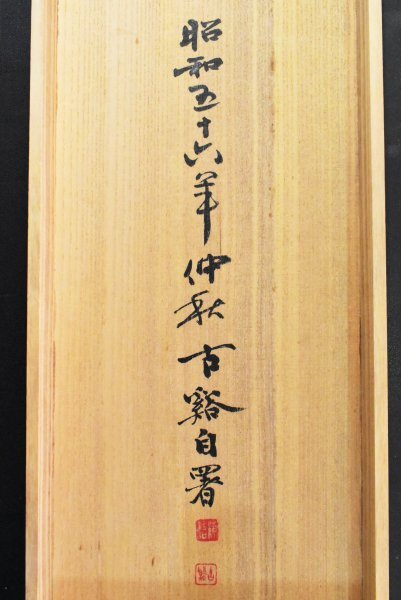 昭和五十六年仲秋古谿自署